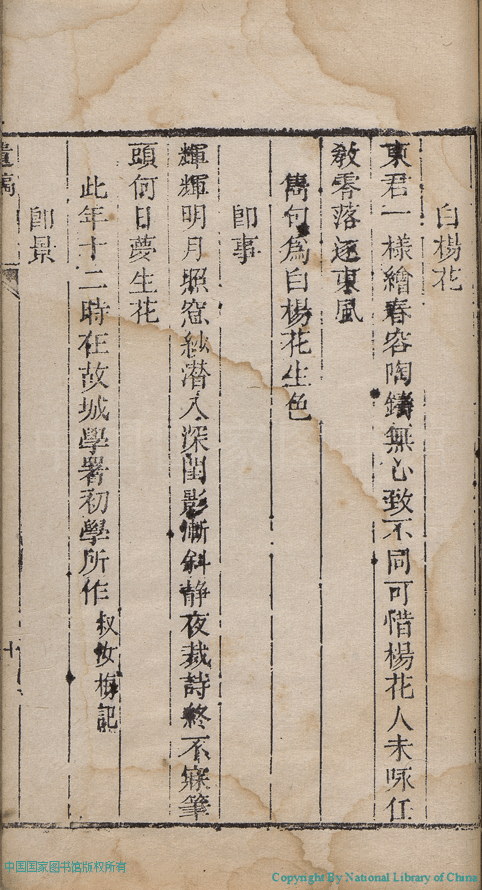 白楊花
東君一樣繪春容陶鑄無心致不同可惜楊花人未咏任
教零落逐東風
雋句為白楊花生色
即事
輝輝明月照窓紗潛入深閨影漸斜靜夜裁詩終不寐筆
頭何日夢生花
此年十二時在故城學署初學所作 叔汝梅記
即景
遺稿
十
中国国家图书馆版权所有
Copyright By National Library of China